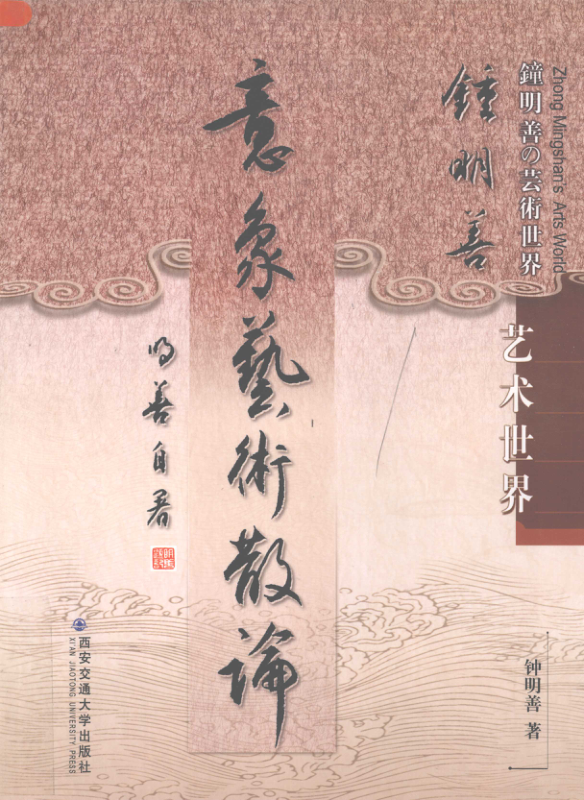 Zhong Mingshan's Arts World
鐘明善の芸術世界
鍾明善
艺术世界
意象藝術散論
明善自署
钟明善 著
西安交通大学出版社
XI'AN JIAOTONG UNIVERSITY PRESS